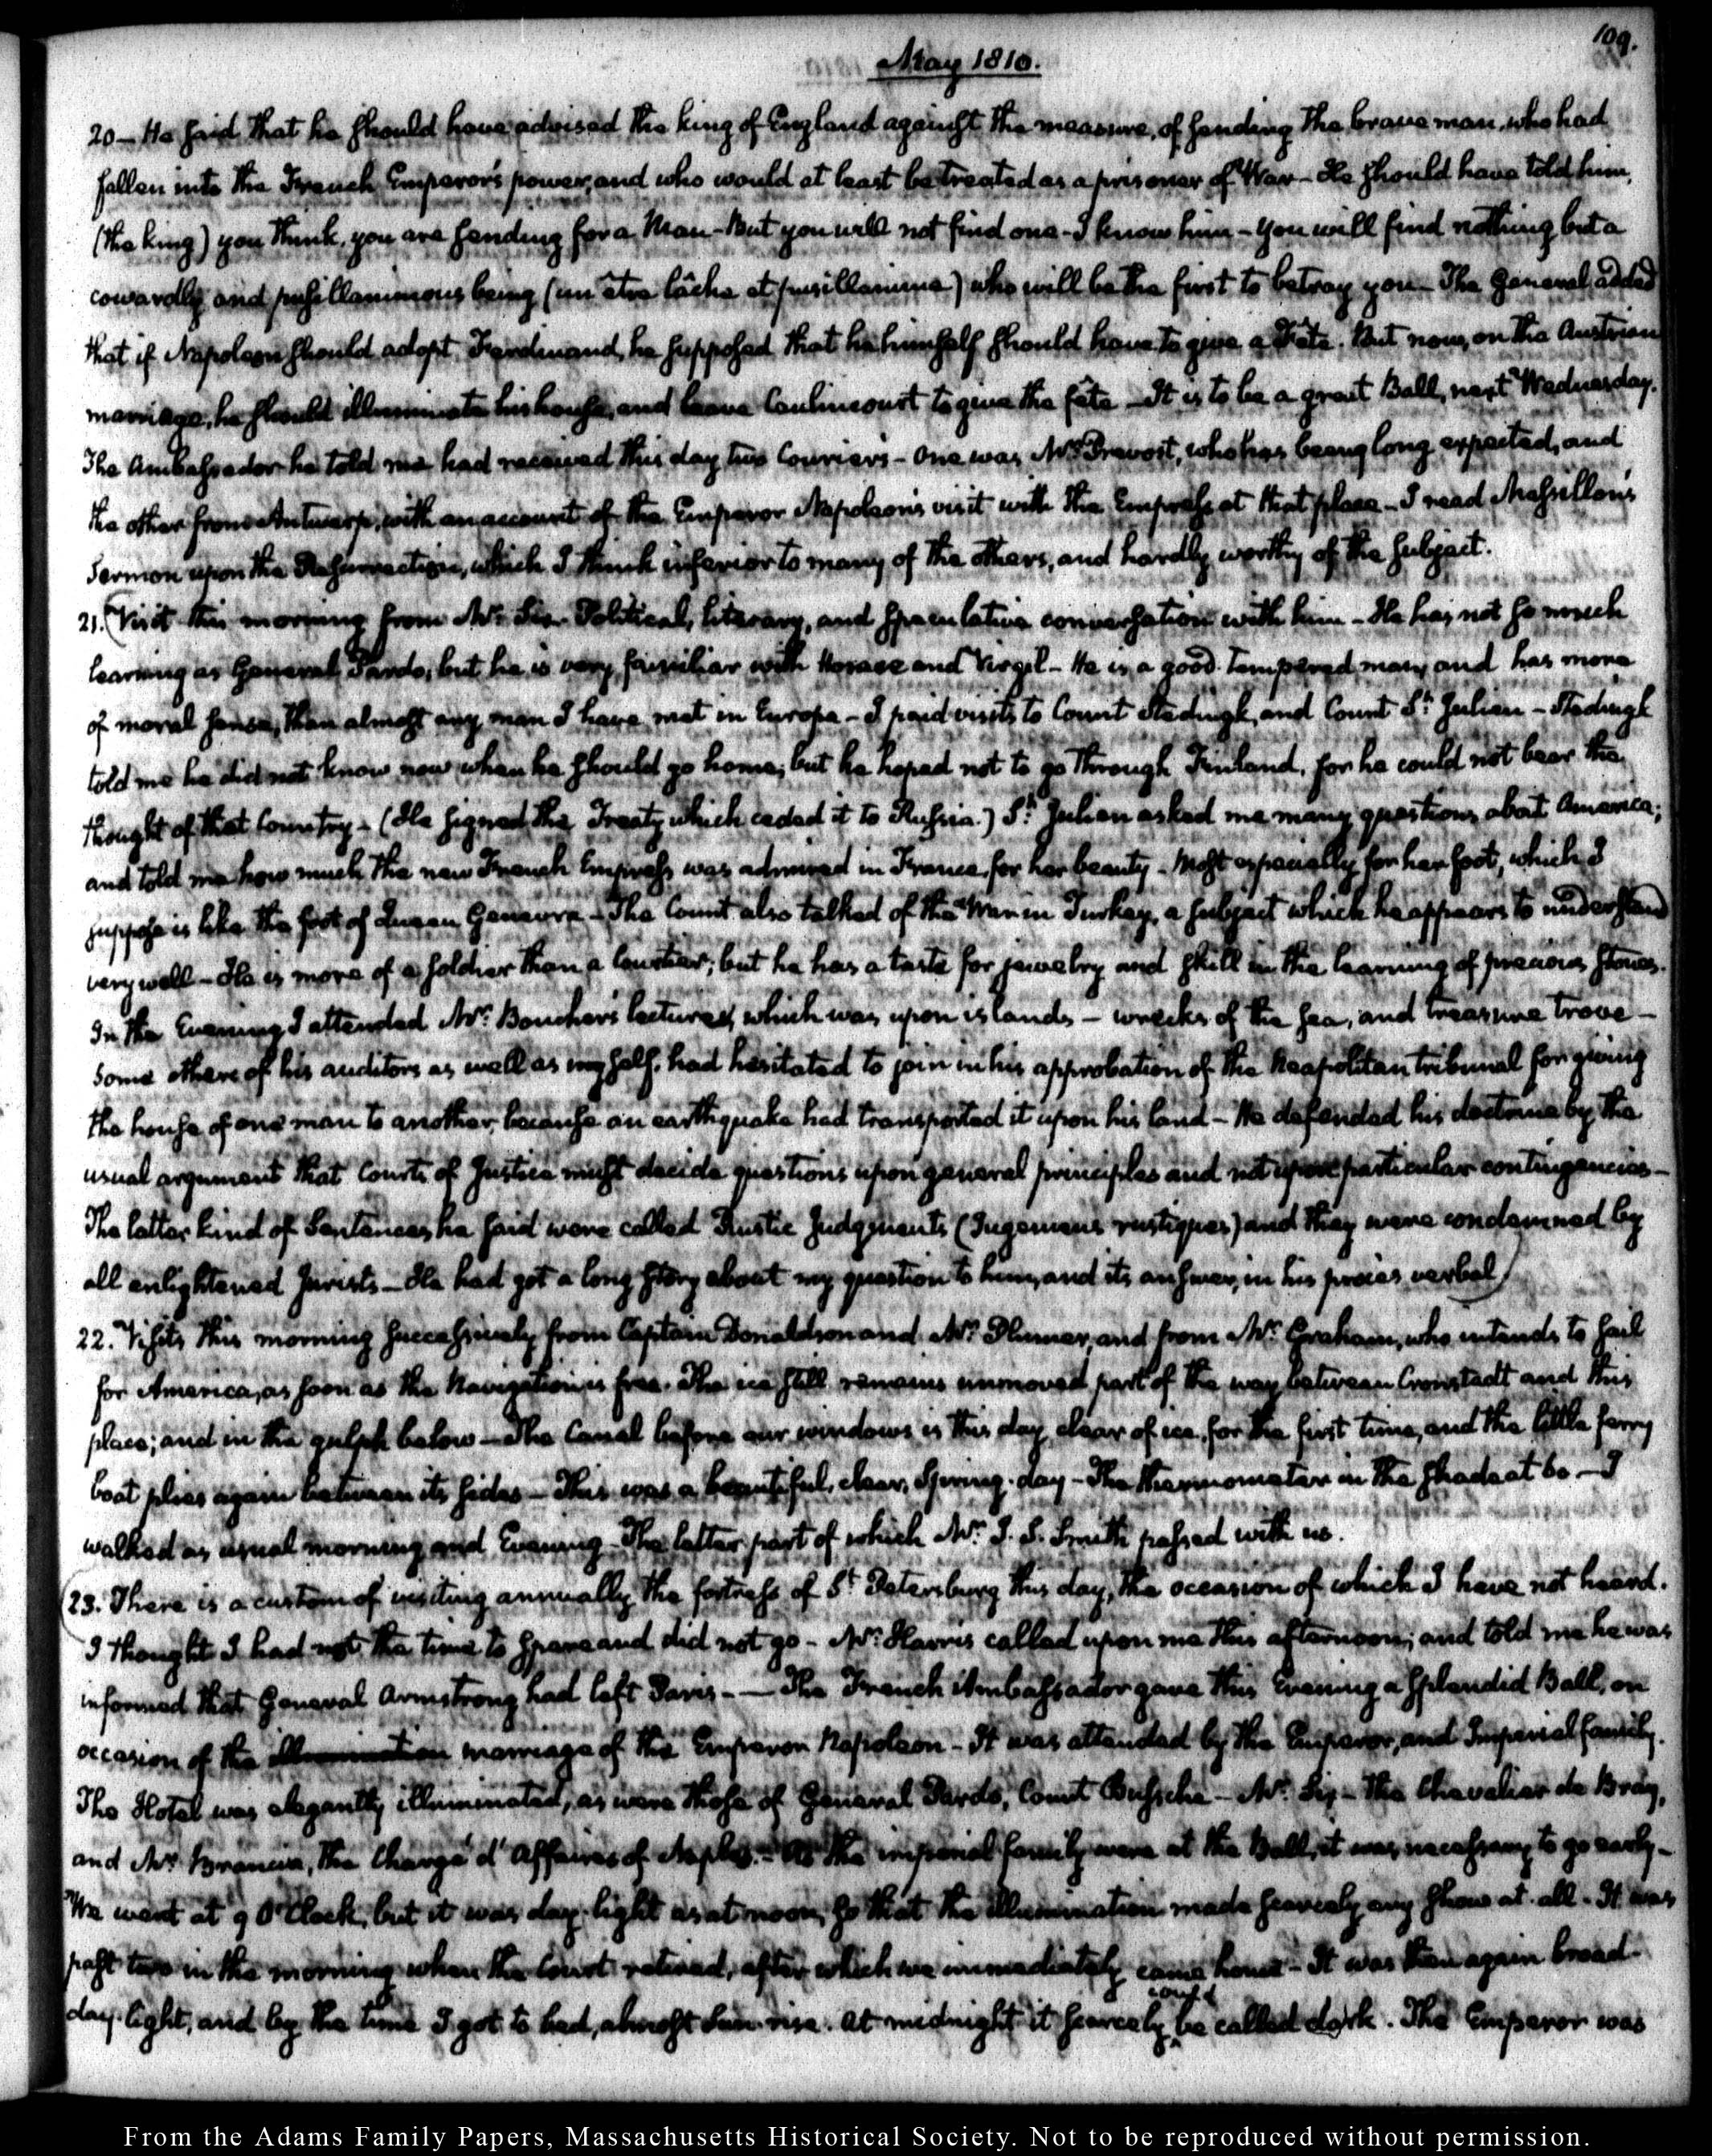 109.
May 1810.
20 — He said that he should have advised the king of England against the measure, of sending the brave man, who had
fallen into the French Emperor's power, and who would at least be treated as a prisoner of War — He should have told him,
(the king) you think, you are sending for a Man — But you will not find one — I know him — you will find nothing but a
cowardly and pusillanimous being (un être lâche et pusillanime) who will be the first to betray you — The General added
that if Napoleon should adopt Ferdinand, he supposed that he himself should have to give a Fete. But now, on the Austrian
marriage, he should illuminate his house, and leave Caulincourt to give the fête — It is to be a great Ball, next Wednesday.
The Ambassador he told me had received this day two Couriers — One was Mr. Prevost, who has been long expected, and
the other from Antwerp, with an account of the Emperor Napoleon's visit with the Empress at that place — I read Massillon's
Sermon upon the Resurrection, which I think inferior to many of the others, and hardly worthy of the subject.
21. Visit this morning from Mr. Six — Political, literary, and speculative conversation with him — He has not so much
learning as General Pardo, but he is very familiar with Horace and Virgil — He is a good tempered man, and has more
of moral sense, than almost any man I have met in Europe — I paid visits to Count Stedingk, and Count St. Julien — Stedingk
told me he did not know now when he should go home; but he hoped not to go through Finland, for he could not bear the
thought of that Country — (He signed the Treaty which ceded it to Russia.) St. Julien asked me many questions abot America;
and told me how much the new French Empress was admired in France, for her beauty — Most especially for her foot, which I
suppose is like the foot of Queen Genevra — The Count also talked of the War in Turkey, a subject which he appears to understand
very well — He is more of a soldier than a Courtier; but he has a taste for jewelry and skill in the learning of precious stones.
In the Evening I attended Mr. Boucher's lecture, which was upon islands — wrecks of the sea, and treasure trove —
Some others of his auditors as well as myself, had hesitated to join in his approbation of the Neapolitan tribunal for giving
the house of one man to another, because an earthquake had transported it upon his land — He defended his doctrine by the
usual argument that Courts of Justice must decide questions upon general principles and not upon particular contingencies —
The latter kind of Sentences, he said were called Rustic Judgments (Jugemens rustiques) and they were condemned by
all enlightened Jurists — He had got a long story about my question to him, and its answer, in his procès verbal.
22. Visits this morning successively from Captain Donaldson and Mr. Plummer, and from Mr. Graham, who intends to sail
for America, as soon as the Navigation is free. The ice still remains unmoved part of the way between Cronstadt and this
place; and in the gulph below — The Canal before our windows is this day clear of ice, for the first time, and the little ferry
boat plies again between its sides — This was a beautiful, clear, Spring-day — The thermometer in the shade at 60 — I
walked as usual morning and Evening — The latter part of which Mr. J. S. Smith passed with us.
23. There is a custom of visiting annually the fortress of St. Petersburg this day, the occasion of which I have not heard.
I thought I had not the time to spare and did not go — Mr. Harris called upon me this afternoon; and told me he was
informed that General Armstrong had left Paris — — The French Ambassador gave this Evening a splendid Ball, on
occasion of the illumination marriage of the Emperor Napoleon — It was attended by the Emperor, and Imperial family.
The Hotel was elegantly illuminated, as were those of General Pardo, Count Bussche — Mr. Six — The Chevalier de Bray,
and Mr. Brancia, the Chargé d'Affaires of Naples. — As the imperial family were at the Ball, it was necessary to go early —
We went at 9 O'Clock, but it was day-light as at noon, so that the illumination made scarcely any show at all — It was
past two in the morning when the Court retired, after which we immediately came home — It was then again broad
day-light, and by the time I got to bed, almost Sun-rise. At midnight it scarcely could be called dark. The Emperor was
From the Adams Family Papers, Massachusetts Historical Society. Not to be reproduced without permission.